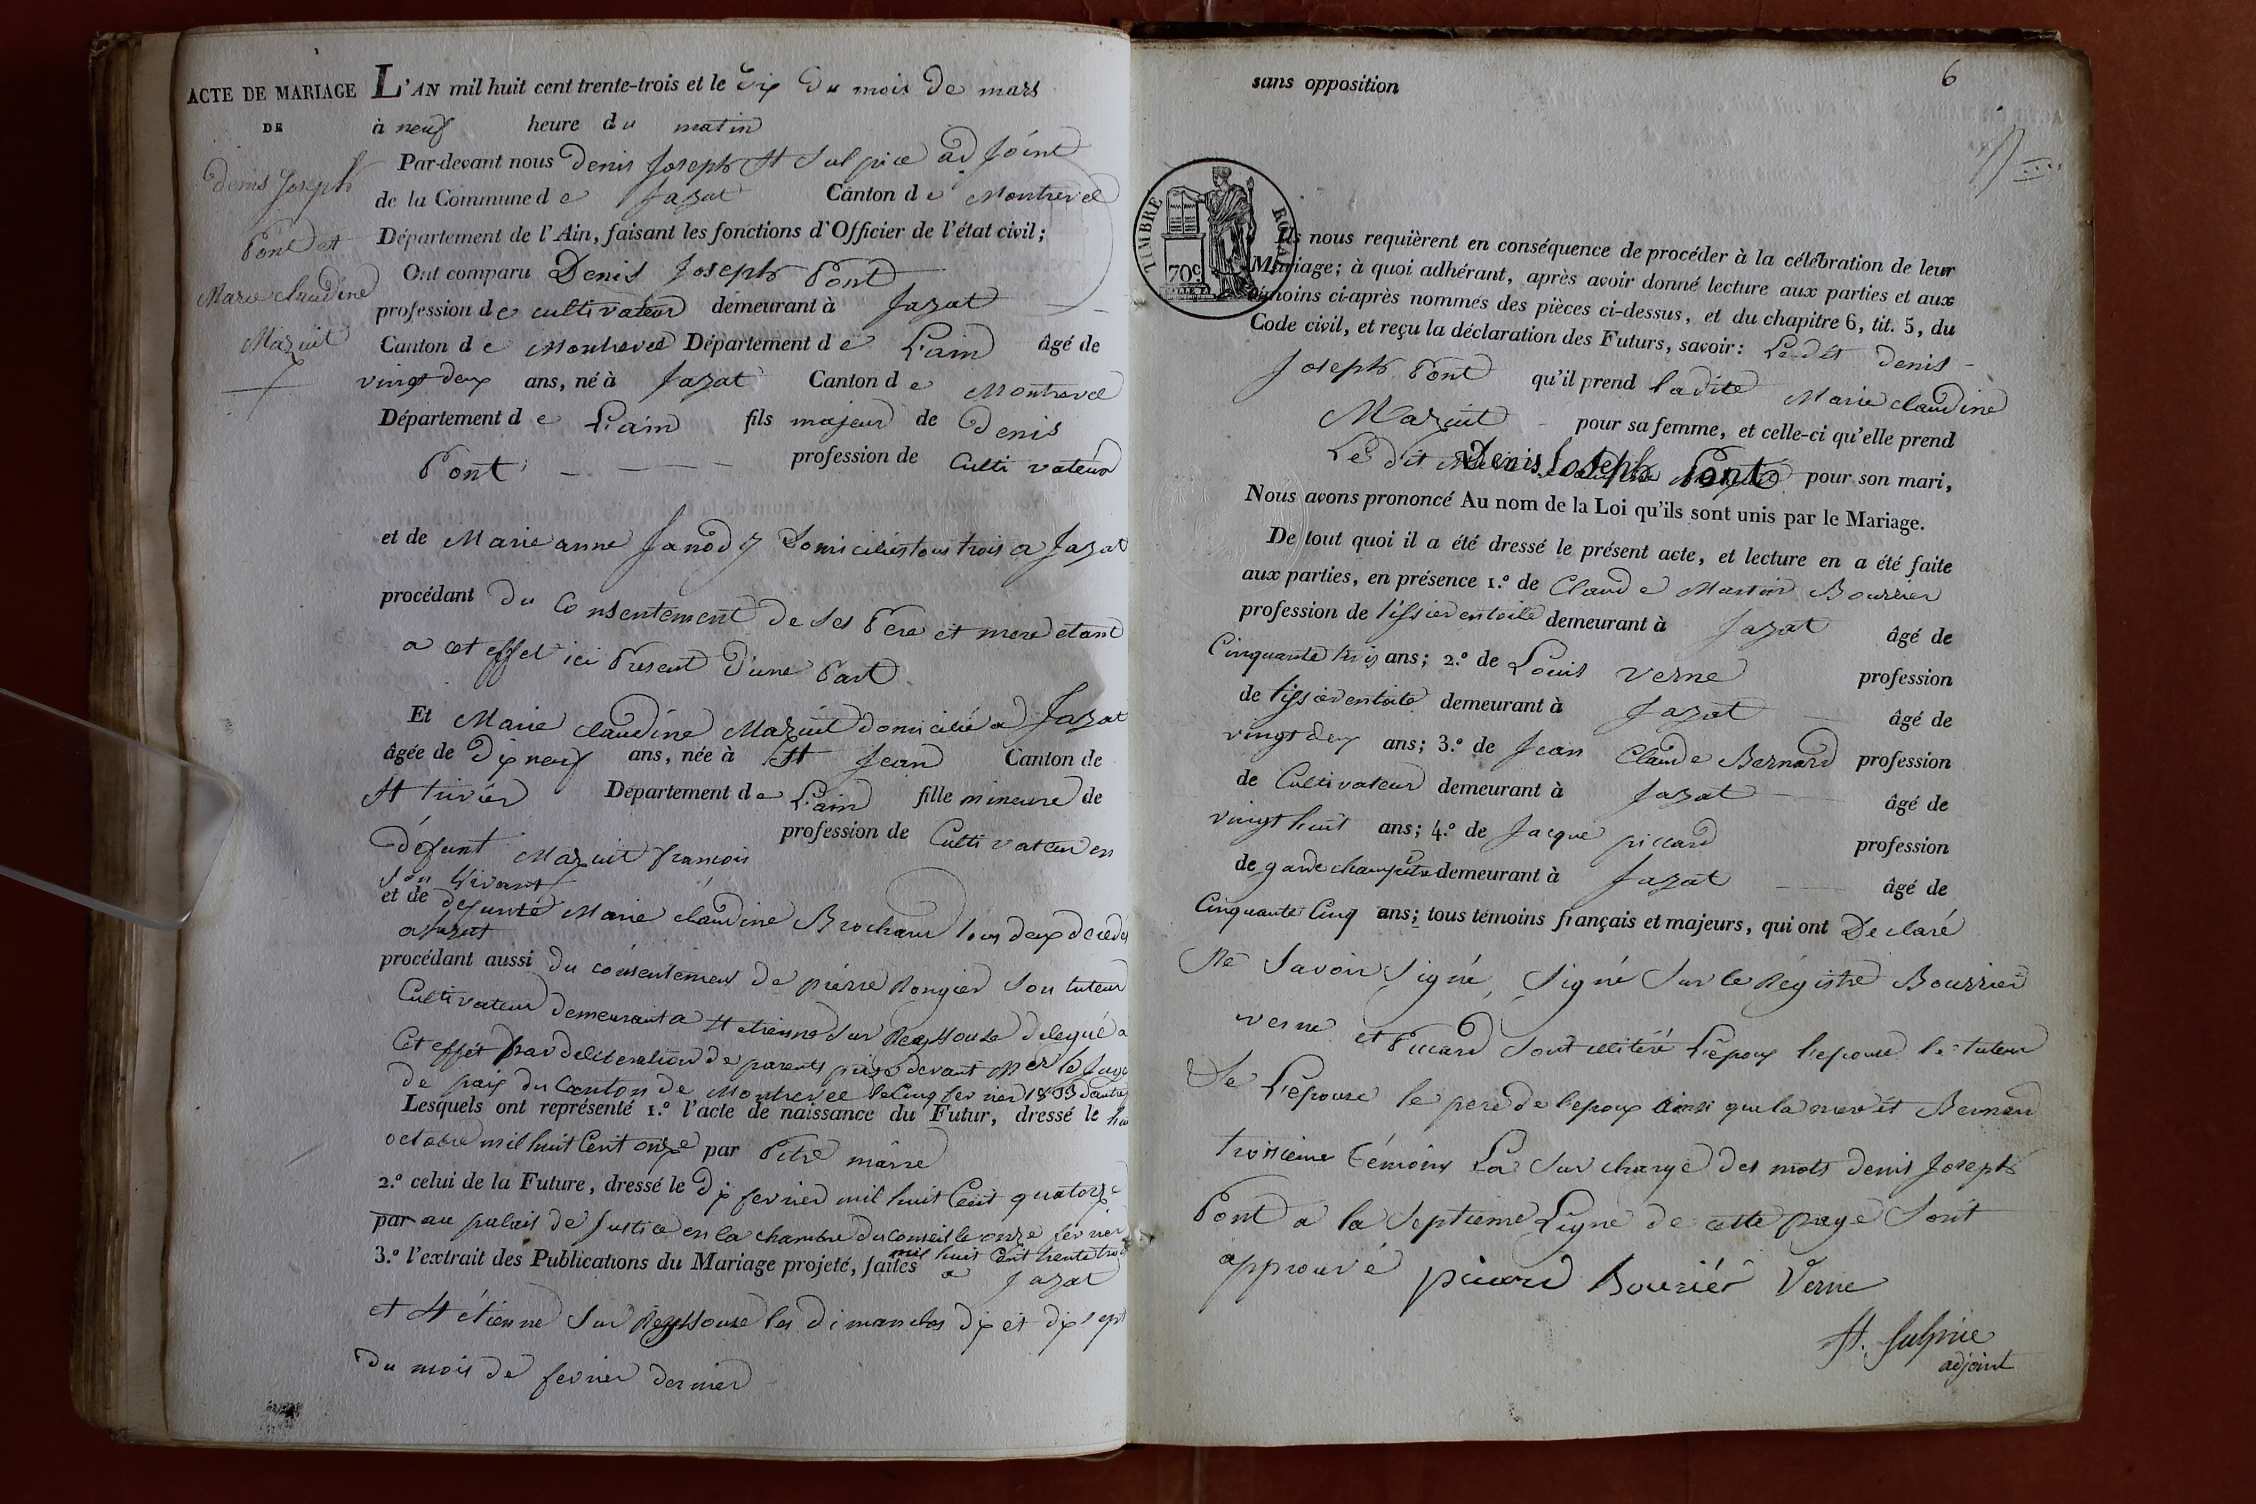 ACTE DE MARIAGE
DE
Denis Joseph
Pont et
Marie Claudine
Mazuit
L'AN mil huit cent trente-trois et le dix du mois de mars
à neuf heure du matin
Par-devant nous Denis Joseph St Sulpice adjoint
de la Commune de Jazat Canton de Montrevel
Département de l'Ain, faisant les fonctions d'Officier de l'état civil;
Ont comparu Denis Joseph Pont
profession de cultivateur demeurant à Jazat
Canton de Montrevel Département de L'ain âgé de
vingt deux ans, né à Jazat Canton de Montrevel
Département de L'ain fils majeur de Denis
Pont profession de Cultivateur
et de Marie anne Janody domiciliés tous trois a Jazat
procédant du Consentement de ses Pere et mere etant
a cet effet ici Present d'une Part
Et Marie Claudine Mazuit domicilié a Jazat
âgée de dix neuf ans, née à St Jean Canton de
St trivier Département de L'ain fille mineure de
Défunt Mazuit francois profession de Cultivateur en
son vivant
et de defunte Marie Claudine Brochand tous deux décédés
a Jazat
procédant aussi du consentement de piérre Rongier son tuteur
Cultivateur demeurant a St etienne sur Reyssouze delegué a
Cet effét par deliberation de parents prise devant Mer le Juge
de paix du Canton de Montrevel le Cinq fevrier 1833 d'autre
Lesquels ont représenté 1.º l'acte de naissance du Futur, dressé le
octobre mil huit Cent onze par Pitre marre
2.º celui de la Future, dressé le dix fevrier mil huit Cent quatorze
par au palais de Justice en la chambre du Conseil le onze fevrier
mil huit Cent trente trois
3.º l'extrait des Publications du Mariage projeté, faites a Jazat
et St étienne sur Reyssouze les dimanches dix et dix sept
du mois de fevrier dernier
6
sans opposition
TIMBRE ROYAL
70c
Ils nous requièrent en conséquence de procéder à la célébration de leur
Mariage; à quoi adhérant, après avoir donné lecture aux parties et aux
témoins ci-après nommés des pièces ci-dessus, et du chapitre 6, tit. 5, du
Code civil, et reçu la déclaration des Futurs, savoir: Le dit denis
Joseph Pont qu'il prend ladite Marie Claudine
Mazuit pour sa femme, et celle-ci qu'elle prend
Le dit Denis Joseph Pont pour son mari,
Nous avons prononcé Au nom de la Loi qu'ils sont unis par le Mariage.
De tout quoi il a été dressé le présent acte, et lecture en a été faite
aux parties, en présence 1.º de Claude Martin Bourrier
profession de tissier en toile demeurant à Jazat âgé de
Cinquante trois ans; 2.º de Louis verne profession
de tissier en toile demeurant à Jazat âgé de
vingt deux ans; 3.º de Jean Claude Bernard profession
de Cultivateur demeurant à Jazat âgé de
vingt huit ans; 4.º de Jacque piccard profession
de garde champêtre demeurant à Jazat âgé de
Cinquante Cinq ans; tous témoins français et majeurs, qui ont Declaré
Ne savoir signé, signé sur le Régistre Bourrier
verne et Picard sont illitéré L'époux l'epouse le tuteur
de L'epouse le pere de l'epoux ainsi que la mere et Bernard
troisieme témoins La surcharge des mots denis Joseph
Pont a la septieme Ligne de cette page sont
approuvé picard Bouriér Verne
St. Sulpice
adjoint